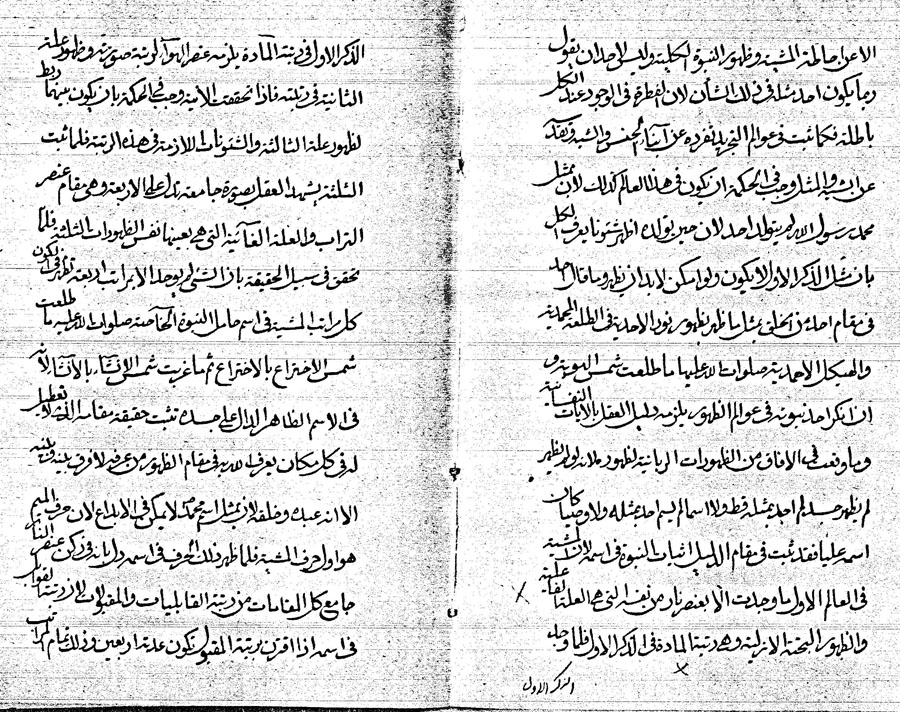 الا عن احاطة المشية وظهور النبوة الكلية وليس لاحد ان يقول
ربما يكون احد مثله في ذلك الشأن لان الفطرة في الوجود عند الكل
باطلة فكما ثبت في عوالم التجريد تفرده عن ابناء الجنس والشبه وتقدسه
عن الشبه والمثل وجب في الحكمة ان يكون في هذا العالم كذلك لان مثل
محمد رسول الله لم يتولد احد لان حين تولده اظهر شئونا يعرف الكل
بان مثل الذكر الاول لا يكون ولو امكن لابد ان يظهر وما قال احد
في مقام احد ان الخلق بمثل ما ظهر بظهور نور الاحدية في الطلعة المحمدية
والهيكل الاحمدية صلوات الله عليها ما طلعت شمس الهوية و
ان انكر احد نبوته في عوالم الظهور يلزمه دليل العقل بالآيات النفسانية
وما وقعت في الافاق من الظهورات الربانية لظهور ملائه لو لم يظهر
لم يظهر جسد لم احد بمثله قط ولا اسما لم يسم احد بمثله ولا وصيا كان
اسمه عليا فقد ثبت في مقام الدليل اثبات النبوة في اسمه لان المشية
في العالم الاول ما وجدت الا بعنصر نار من نفسه التي هي العلة الفاعلية
والظهور البحتة الازلية وهي رتبة المادة في الذكر الاول فلما وجد
الذكر الاول
الذكر الاول في رتبة المادة يلزمه عنصر الهواء لرتبة صورته وظهور علة
الثانية في رتبته فاذا تحققت الاثنينية وجب في الحكمة بان يكون بينهما ربط
لظهور علة الثالثة والشئونات اللازمة في هذه الرتبة فلما ثبت
الثلثة يشهد العقل بصورة جامعة تدل على الاربعة وهي مقام عنصر
التراب والعلة الغائية التي هي بعينها نفس الظهورات الثلثة فلما
تحقق في سبيل الحقيقة بان الشئ لم يوجد الا بمراتب اربعة تظهر في الكون
كل مراتب المشية في اسم حامل النبوة الخاصة صلوات الله عليه ما طلعت
شمس الاختراع بالاختراع ثم ما غربت شمس الانشاء بالانشاء لان
في الاسم الظاهر الدال على جسده تثبت حقيقة مقامه التي لا تعطيل
له في كل مكان يعرف الله به في مقام الظهور من عرفه لا فرق بينه وبينه
الا انه عبده وخلقه لان مثل اسم محمد لا يمكن في الابداع لان حرف الميم
هو اول حرف المشية فلما ظهر ذلك الحرف في اسمه دل بانه في ركن عنصر النار
جامع كل المقامات من رتبة القابليات والمقبولات لان رتبة القوابل
في اسمه اذا اقترن برتبة المقبول تكون عدته اربعين وذلك تمام المراتب